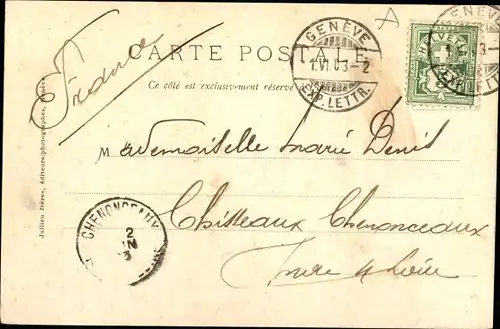 France
CARTE POSTALE
Ce côté est exclusivement réservé
GENÈVE
1.VI.03-2
EXP. LETTR.
GENÈVE
HELVETIA
EXP. LETTR.
Mademoiselle Marie Denis
Chisseaux Chenonceaux
Indre & Loire
CHENONCEAUX
2
JUIN
Jullien frères, éditeurs-photographes, Genève